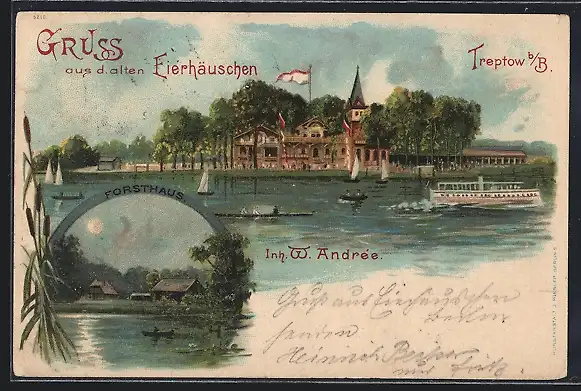 5210
GRUSS
aus d. alten Eierhäuschen
Treptow b/B.
FORSTHAUS
Inh. W. Andrée.
Gruß aus Eierhäuschen
Berlin
senden
Heinrich
und Fritz